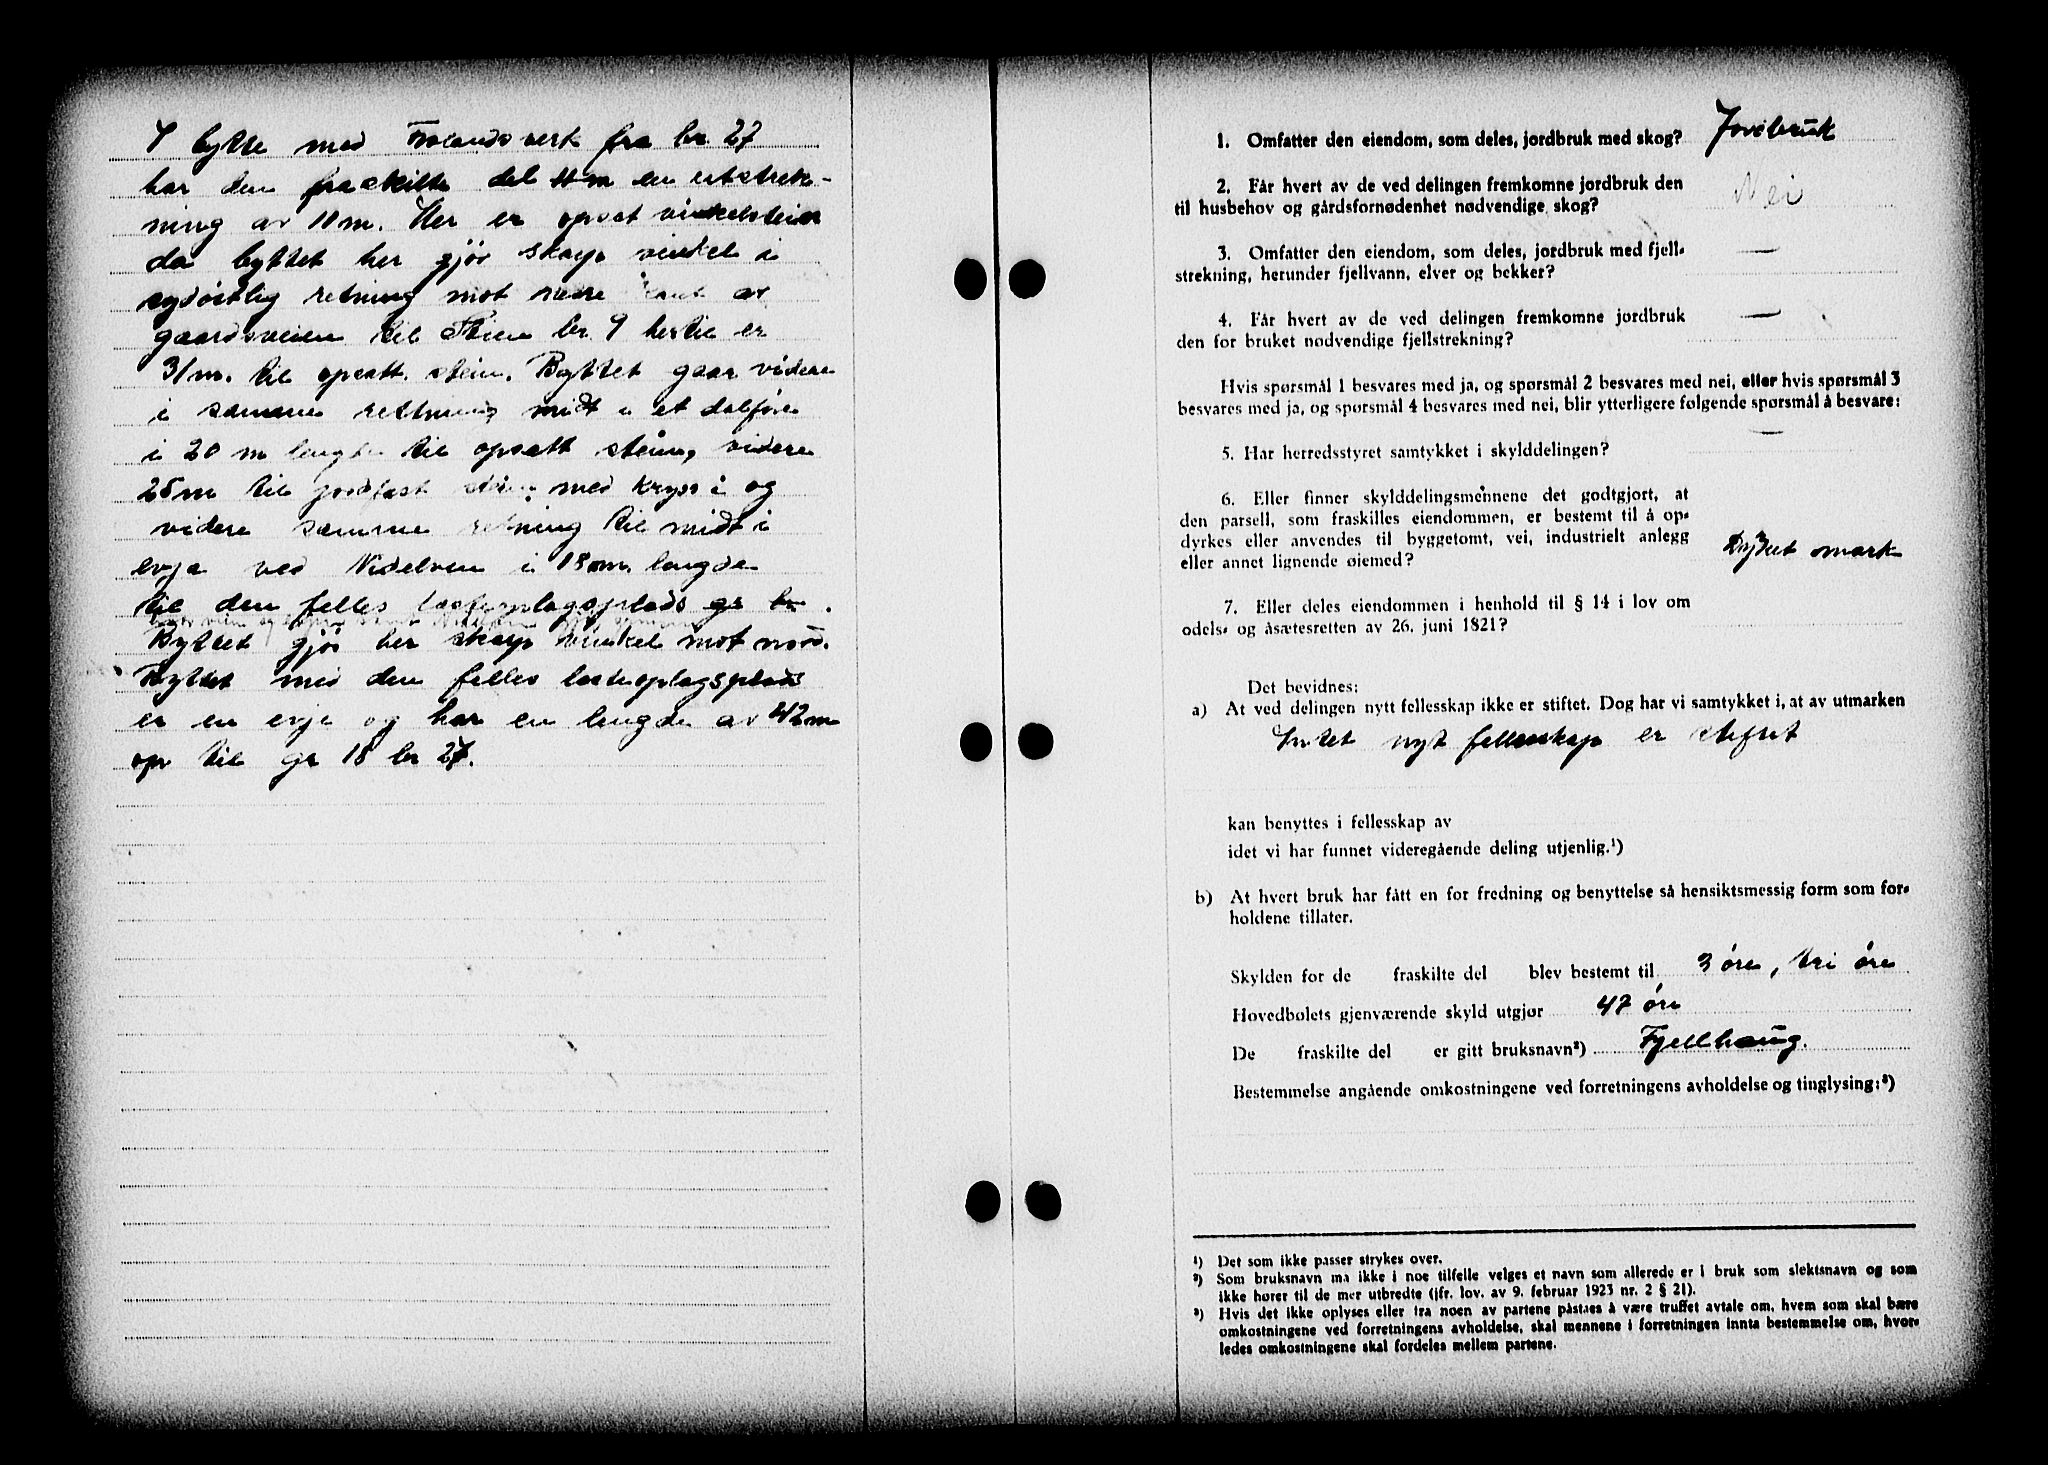 I bytte med Frolandsverk fra br. 27
har den fraskilte del en utstrek-
ning av 11 m. Her er opsat vinkelstein
da byttet her gjør skarp vinkel i
sydøstlig retning mot nedre kant av
gaardsveien til Stien br 9 hertil er
31 m. til opsatt stein. Byttet gaar videre
i samme retning midt i et dalføre
i 20 m lengde til opsatt stein, videre
25 m til jordfast stein med kryss i og
videre samme retning til midt i
evja ved Nidelven i 18 m. lengde
til den felles lasteoplagsplads gr br.
Byttet gjør her skarp vinkel mot nord.
Byttet med den felles lasteoplagsplads
er en evje og har en lengde av 42 m
op til gr 18 br 27.
1. Omfatter den eiendom, som deles, jordbruk med skog? Jordbruk
2. Får hvert av de ved delingen fremkomne jordbruk den
til husbehov og gårdsfornødenhet nødvendige skog? Nei
3. Omfatter den eiendom, som deles, jordbruk med fjell- —
strekning, herunder fjellvann, elver og bekker?
4. Får hvert av de ved delingen fremkomne jordbruk —
den for bruket nødvendige fjellstrekning?
Hvis spørsmål 1 besvares med ja, og spørsmål 2 besvares med nei, eller hvis spørsmål 3
besvares med ja, og spørsmål 4 besvares med nei, blir ytterligere følgende spørsmål å besvare:
5. Har herredsstyret samtykket i skylddelingen? —
6. Eller finner skylddelingsmennene det godtgjort, at
den parsell, som fraskilles eiendommen, er bestemt til å op-
dyrkes eller anvendes til byggetomt, vei, industrielt anlegg
eller annet lignende øiemed? Dyrket mark
7. Eller deles eiendommen i henhold til § 14 i lov om
odels- og åsætesretten av 26. juni 1821?
Det bevidnes:
a) At ved delingen nytt fellesskap ikke er stiftet. Dog har vi samtykket i, at av utmarken
Intet nyt fellesskap er stiftet
kan benyttes i fellesskap av
idet vi har funnet videregående deling utjenlig.¹)
b) At hvert bruk har fått en for fredning og benyttelse så hensiktsmessig form som for-
holdene tillater.
Skylden for de fraskilte del blev bestemt til 3 øre, tri øre
Hovedbølets gjenværende skyld utgjør 47 øre
De fraskilte del er gitt bruksnavn²) Fjellhaug.
Bestemmelse angående omkostningene ved forretningens avholdelse og tinglysing:³)
¹) Det som ikke passer strykes over.
²) Som bruksnavn må ikke i noe tilfelle velges et navn som allerede er i bruk som slektsnavn og som
ikke hører til de mer utbredte (jfr. lov. av 9. februar 1923 nr. 2 § 21).
³) Hvis det ikke oplyses eller fra noen av partene påståes å være truffet avtale om, hvem som skal bære
omkostningene ved forretningens avholdelse, skal mennene i forretningen innta bestemmelse om, hvor-
ledes omkostningene skal fordeles mellem partene.